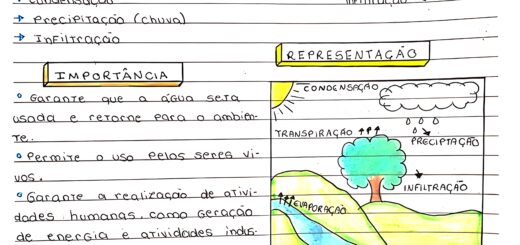 → Precipitação (chuva)
→ Infiltração
IMPORTÂNCIA
• Garante que a água seja
usada e retorne para o ambien-
te.
• Permite o uso pelos seres vi-
vos.
• Garante a realização de ativi-
dades humanas, como geração
de energia e atividades indus-
REPRESENTAÇÃO
CONDENSAÇÃO
TRANSPIRAÇÃO
PRECIPTAÇÃO
INFILTRAÇÃO
EVAPORAÇÃO